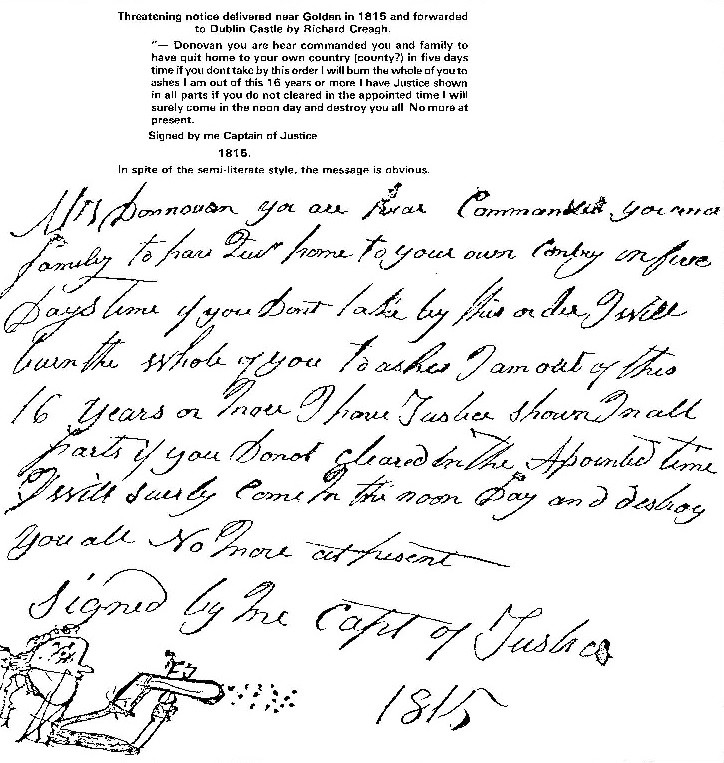 Threatening notice delivered near Golden in 1815 and forwarded
to Dublin Castle by Richard Creagh.
"— Donovan you are hear commanded you and family to
have quit home to your own country (county?) in five days
time if you dont take by this order I will burn the whole of you to
ashes I am out of this 16 years or more I have Justice shown
in all parts if you do not cleared in the appointed time I will
surely come in the noon day and destroy you all No more at
present.
Signed by me Captain of Justice
1815.
In spite of the semi-literate style, the message is obvious.
Donnovan you are hear Commanded you and
family to have Quit home to your own Contry in five
Days time if you Dont take by this order I will
burn the whole of you to ashes I am out of this
16 years or more I have Justice shown In all
parts if you Do not Cleared In the Apointed time
I Will suerly Come In the noon Day and destroy
you all No More at present
Signed by me Capt of Justice
1815